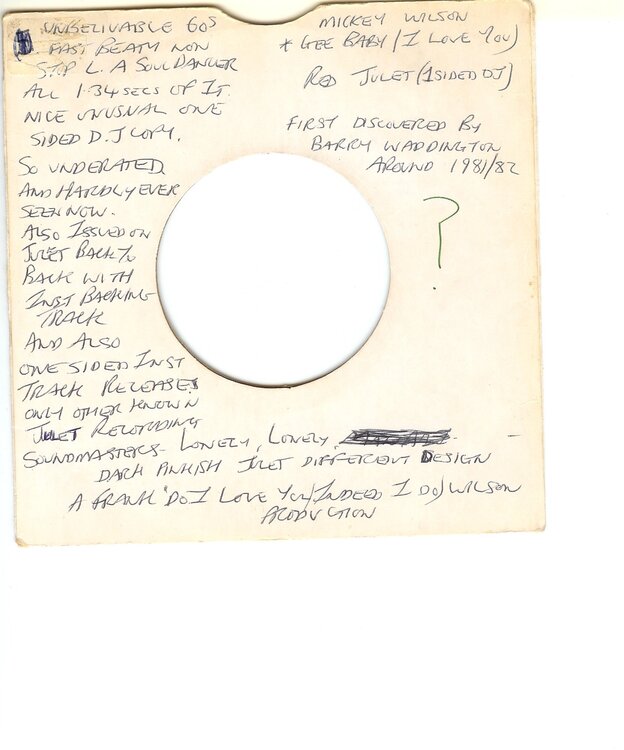 UNBELIVABLE 60S
FAST BEATY NON
STOP L.A SOUL DANCER
ALL 1·34 SECS OF IT.
NICE UNUSUAL ONE
SIDED D.J COPY.
SO UNDERATED
AND HARDLY EVER
SEEN NOW.
ALSO ISSUED ON
JULET BACK TO
BACK WITH
INST BACKING
TRACK
AND ALSO
ONE SIDED INST
TRACK RELEASE!
ONLY OTHER KNOWN
JULET RECORDING
SOUNDMASTERS - LONELY, LONELY,
DARK PINKISH JULET DIFFERENT DESIGN
A FRANK "DO I LOVE YOU (INDEED I DO) WILSON
PRODUCTION
MICKEY WILSON
* GEE BABY (I LOVE YOU)
RED JULET (1 SIDED DJ)
FIRST DISCOVERED BY
BARRY WADDINGTON
AROUND 1981/82
?